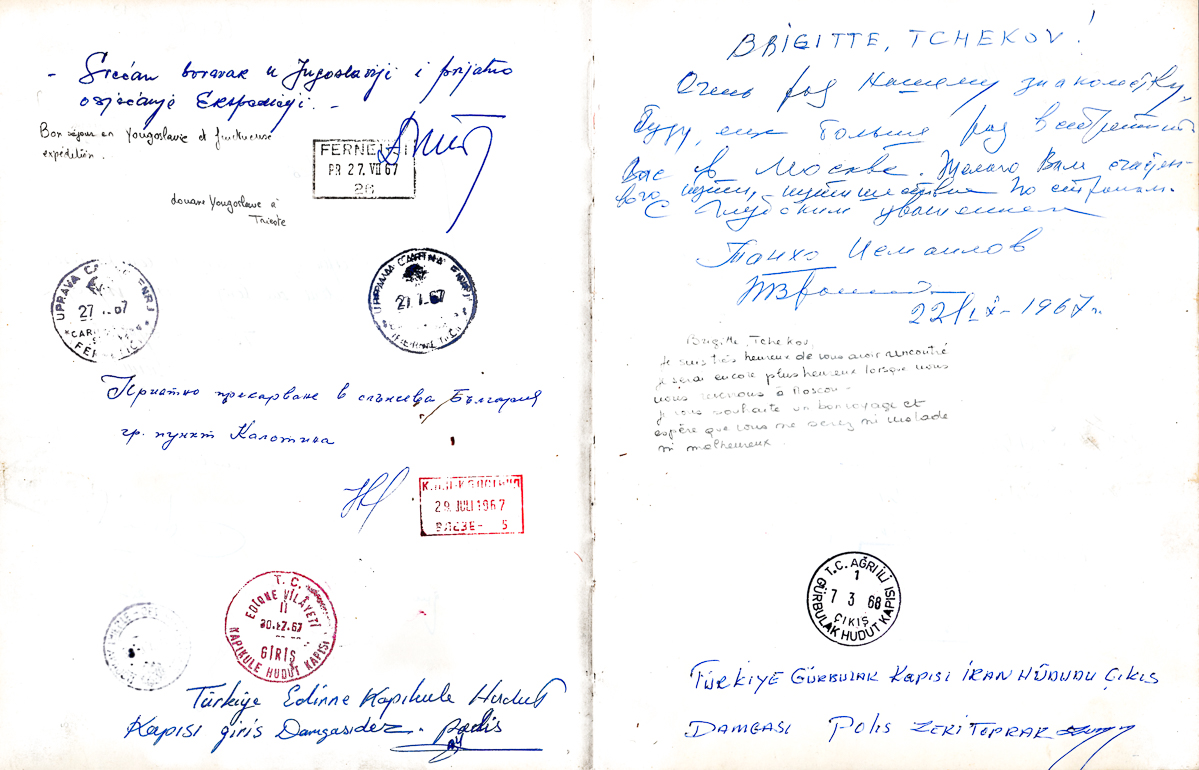 - Srećan boravak u Jugoslaviji i prijatno
osjećanje Ekspediciji. -
Bon séjour en Yougoslavie et fructueuse
expédition.
FERNETIĆI
PR 27. VII 67
26
douane Yougoslave à
Trieste
UPRAVA CARINA FNRJ
27 67
UPRAVA CARINA FNRJ
27 67
Приятно прекарване в слънчева България
гр. пункт Калотина
29 JULI 1967
5
T. C.
EDİRNE VİLÂYETİ
II
30.7.67
GİRİŞ
KAPIKULE HUDUT KAPISI
Türkiye Edirne Kapikule Hudut
Kapısı giris Damgasıdez. Polis
BRIGITTE, TCHEKOV!
Очень рад нашему знакомству,
Буду еще больше рад встретить
Вас в Москве. Желаю Вам счастли-
вого пути, путешествия по странам.
С глубоким уважением
Исмаилов
22/IX-1967г.
Brigitte, Tchekov,
Je suis très heureux de vous avoir rencontré
je serai encore plus heureux lorsque nous
nous reverrons à Moscou -
je vous souhaite un bon voyage et
espère que vous ne serez ni malade
ni malheureux.
T.C. AĞRI İLİ
1
7 3 68
ÇIKIŞ
GÜRBULAK HUDUT KAPISI
TÜRKİYE GÜRBULAK KAPISI İRAN HÜDUDU ÇIKIS
DAMGASI POLIS ZEKİ TOPRAK